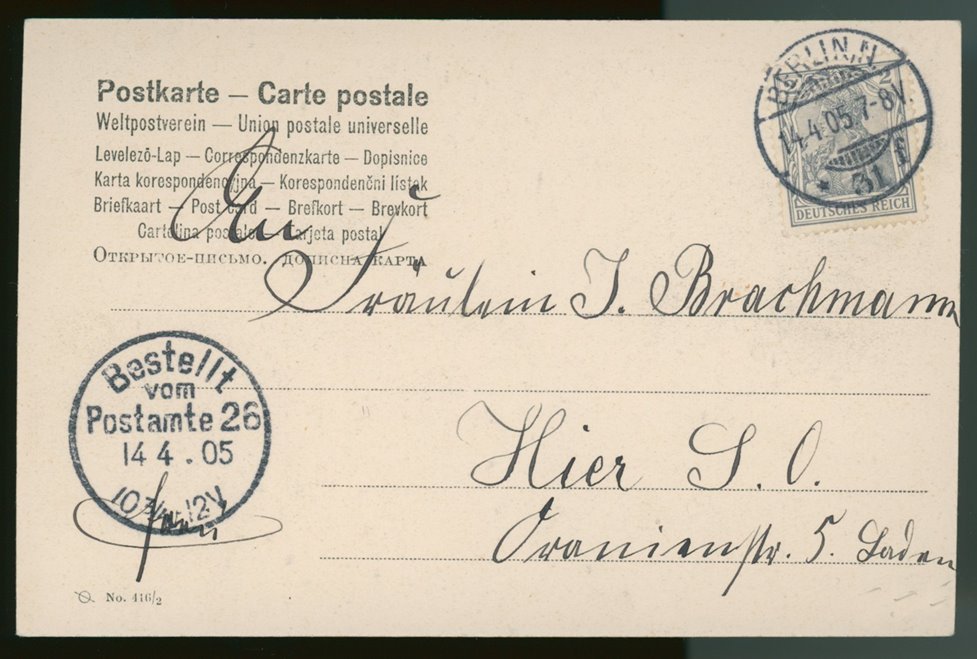 Postkarte — Carte postale
Weltpostverein — Union postale universelle
Levelező-Lap — Correspondenzkarte — Dopisnice
Karta korespondencyjna — Korespondenční lístek
Briefkaart — Post card — Brefkort — Brevkort
Cartolina postale — Tarjeta postal
Открытое-письмо. дописна карта
BERLIN, N.
14.4.05.7-8V.
* 31 f
2
DEUTSCHES REICH
Fräulein J. Brachmann
Bestellt
vom
Postamte 26
14 4 . 05
10 3/4-12V
Hier S. O.
Oranienstr. 5. Laden
No. 416/2